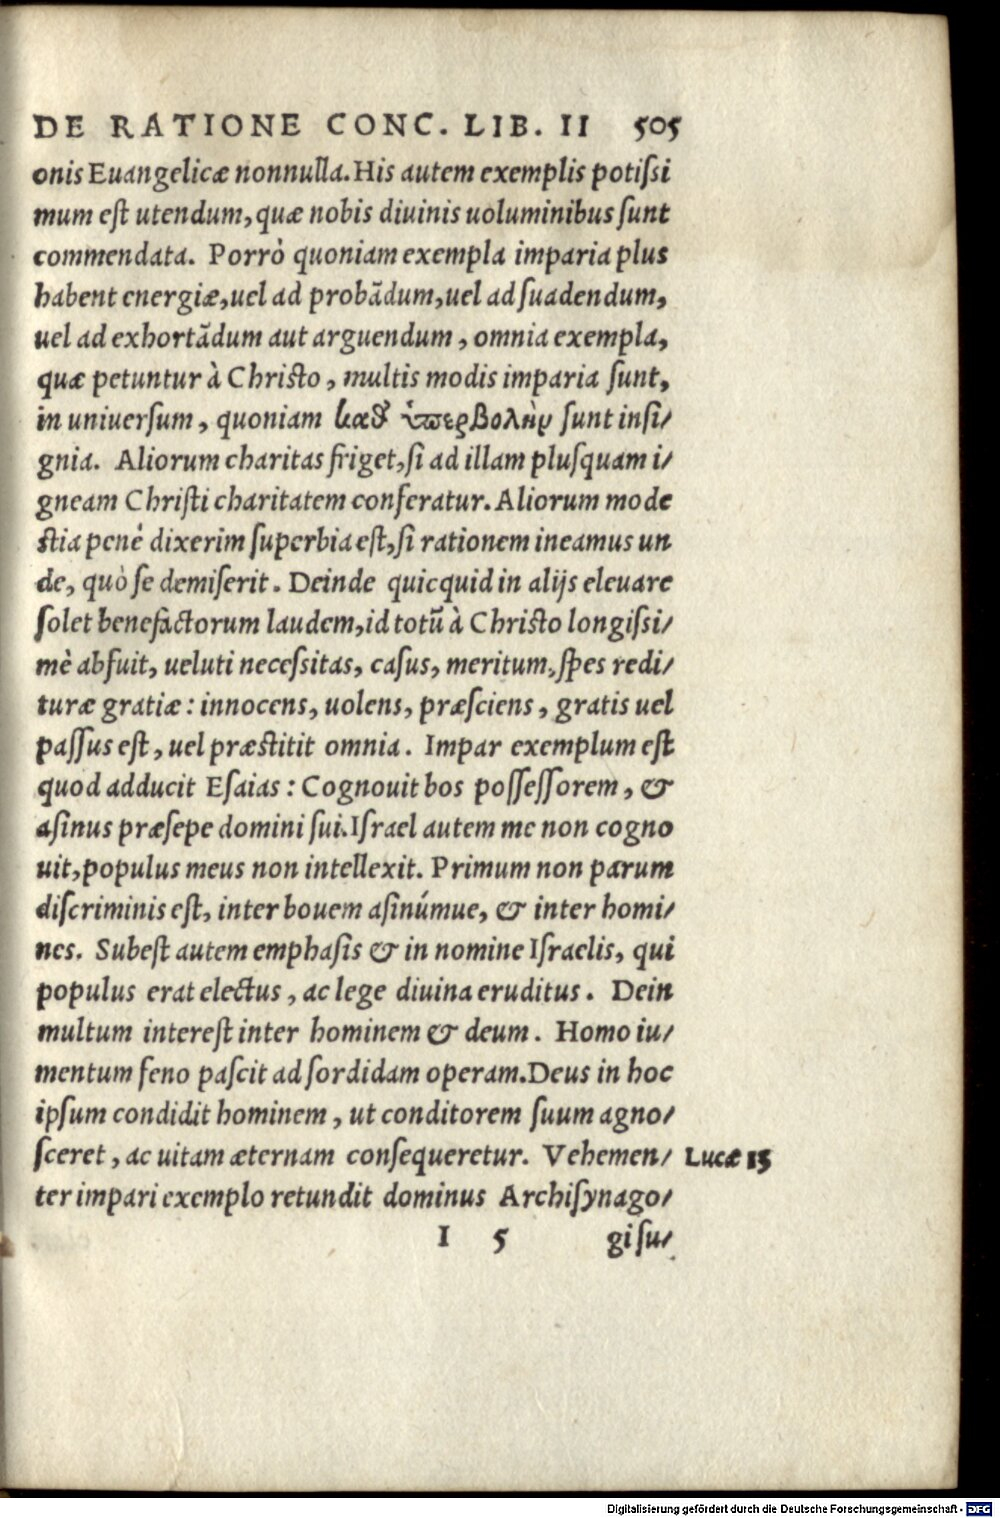 DE RATIONE CONC. LIB. II 505
onis Euangelicæ nonnulla. His autem exemplis potiſsi
mum eſt utendum, quæ nobis diuinis uoluminibus ſunt
commendata. Porrò quoniam exempla imparia plus
habent energiæ, uel ad probãdum, uel ad ſuadendum,
uel ad exhortãdum aut arguendum, omnia exempla,
quæ petuntur à Chriſto, multis modis imparia ſunt,
in uniuerſum, quoniam καθ' ὑπερβολὴν ſunt inſi/
gnia. Aliorum charitas friget, ſi ad illam pluſquam i/
gneam Chriſti charitatem conferatur. Aliorum mode
ſtia penè dixerim ſuperbia eſt, ſi rationem ineamus un
de, quò ſe demiſerit. Deinde quicquid in alijs eleuare
ſolet benefactorum laudem, id totũ à Chriſto longiſsi/
mè abfuit, ueluti neceſsitas, caſus, meritum, ſpes redi/
turæ gratiæ: innocens, uolens, præſciens, gratis uel
paſſus eſt, uel præſtitit omnia. Impar exemplum eſt
quod adducit Eſaias: Cognouit bos poſſeſſorem, &
aſinus præſepe domini ſui. Iſrael autem me non cogno
uit, populus meus non intellexit. Primum non parum
diſcriminis eſt, inter bouem aſinúmue, & inter homi/
nes. Subeſt autem emphaſis & in nomine Iſraelis, qui
populus erat electus, ac lege diuina eruditus. Dein
multum intereſt inter hominem & deum. Homo iu/
mentum feno paſcit ad ſordidam operam. Deus in hoc
ipſum condidit hominem, ut conditorem ſuum agno/
ſceret, ac uitam æternam conſequeretur. Vehemen/ Lucæ 13
ter impari exemplo retundit dominus Archiſynago/
I 5 gi ſu/
Digitalisierung gefördert durch die Deutsche Forschungsgemeinschaft - DFG